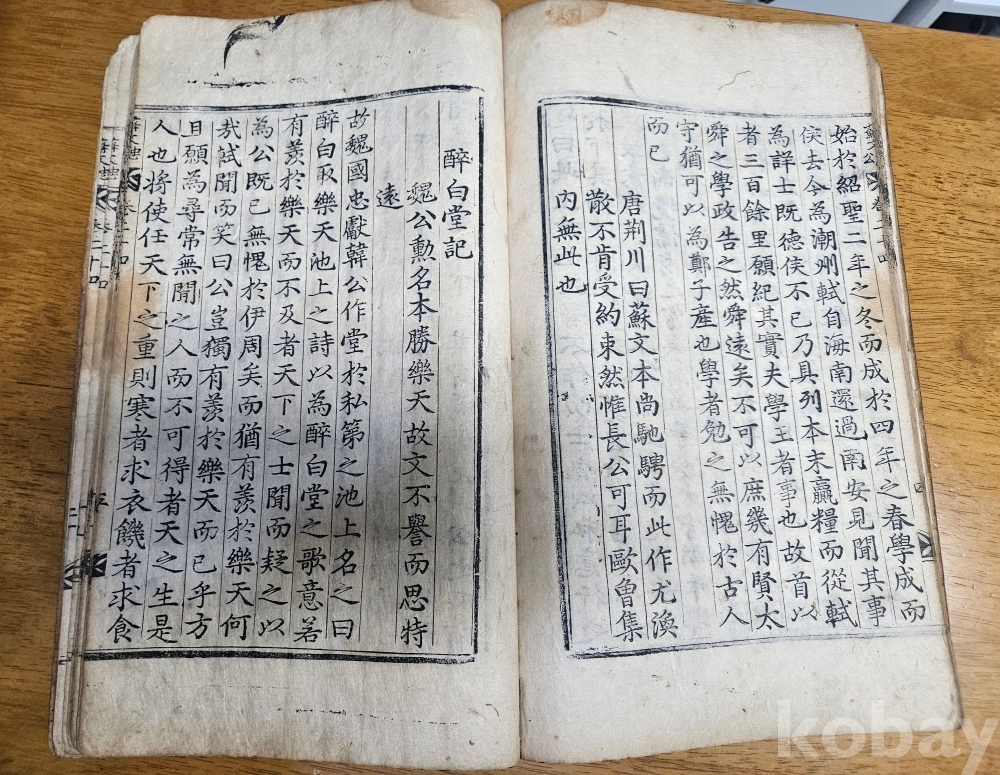 始於紹聖二年之冬而成於四年之春學成而
侯去今為潮州軾自海南還過南安見聞其事
為詳士既德侯不已乃具列本末贏糧而從軾
者三百餘里願紀其實夫學王者事也故首以
舜之學政告之然舜遠矣不可以庶幾有賢太
守猶可以為鄭子產也學者勉之無愧於古人
而已
唐荊川曰蘇文本尚馳騁而此作尤渙
散不肯受約束然惟長公可耳歐曾集
內無此也
醉白堂記
魏公勲名本勝樂天故文不譽而思特
遠
故魏國忠獻韓公作堂於私第之池上名之曰
醉白取樂天池上之詩以為醉白堂之歌意若
有羨於樂天而不及者天下之士聞而疑之以
為公既已無愧於伊周矣而猶有羨於樂天何
哉軾聞而笑曰公豈獨有羨於樂天而已乎方
且願為尋常無聞之人而不可得者天之生是
人也將使任天下之重則寒者求衣饑者求食
卷二十四
kobay